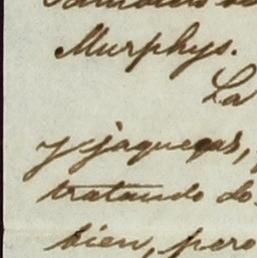 Murphys.
La
y jaquecas,
tratando do
bien, pero